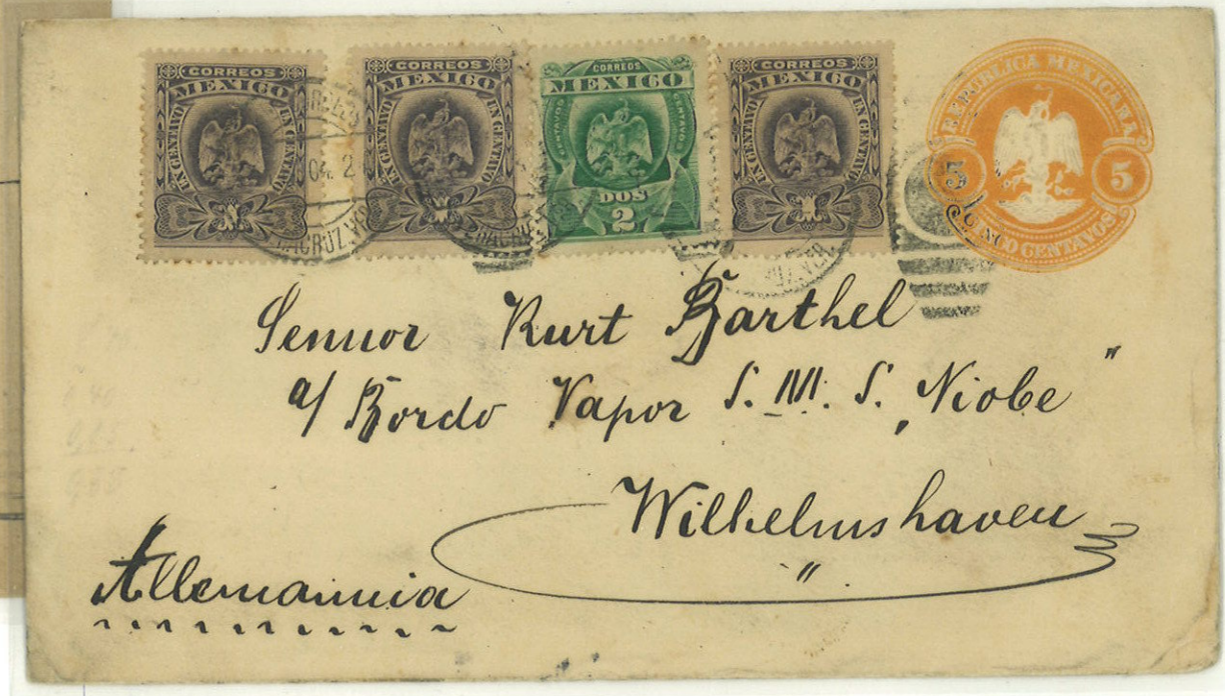 CORREOS
MEXICO
UN CENTAVO UN CENTAVO
CORREOS
MEXICO
UN CENTAVO UN CENTAVO
CORREOS
MEXICO
CENTAVOS CENTAVOS
DOS
2
CORREOS
MEXICO
UN CENTAVO UN CENTAVO
REPUBLICA MEXICANA
5 5
CINCO CENTAVOS
04. 2
Sennor Kurt Barthel
a/ Bordo Vapor S. M. S. „Niobe"
Wilhelmshaven
"
Allemannia